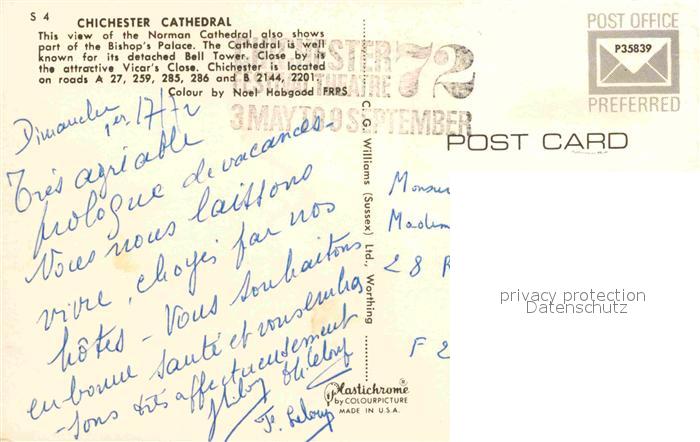 S 4
CHICHESTER CATHEDRAL
This view of the Norman Cathedral also shows
part of the Bishop's Palace. The Cathedral is well
known for its detached Bell Tower. Close by is
the attractive Vicar's Close. Chichester is located
on roads A 27, 259, 285, 286 and B 2144, 2201
Colour by Noel Habgood FRRS
CHICHESTER
FESTIVAL THEATRE 72
3 MAY TO 9 SEPTEMBER
POST OFFICE
P35839
PREFERRED
POST CARD
C. G. Williams (Sussex) Ltd., Worthing
Dimanche 1er/7/72
Très agréable
prologue de vacances -
Nous nous laissons
vivre, choyés par nos
hôtes - Vous souhaitons
en bonne santé et vous embras
-sons très affectueusement
F. Leloup
Monsieur
Madem
28 R
F 2
privacy protection
Datenschutz
Plastichrome®
by COLOURPICTURE
MADE IN U.S.A.